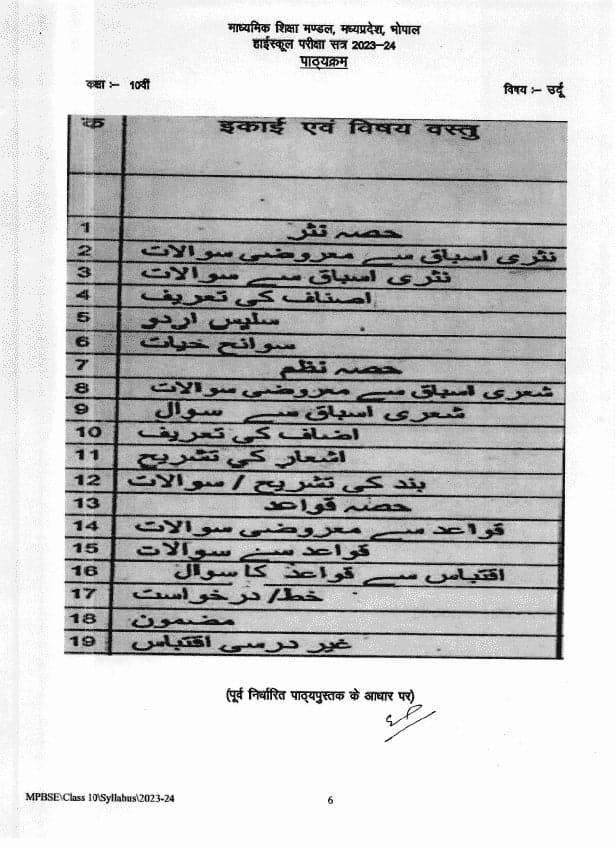 माध्यमिक शिक्षा मण्डल, मध्यप्रदेश, भोपाल
हाईस्कूल परीक्षा सत्र 2023-24
पाठ्यक्रम
कक्षा :- 10वीं
विषय :- उर्दू
क इकाई एवं विषय वस्तु
1 حصہ نثر
2 نثری اسباق سے معروضی سوالات
3 نثری اسباق سے سوالات
4 اصناف کی تعریف
5 سلیس اردو
6 سوانح حیات
7 حصہ نظم
8 شعری اسباق سے معروضی سوالات
9 شعری اسباق سے سوال
10 اضاف کی تعریف
11 اشعار کی تشریح
12 بند کی تشریح / سوالات
13 حصہ قواعد
14 قواعد سے معروضی سوالات
15 قواعد سے سوالات
16 اقتباس سے قواعد کا سوال
17 خط/درخواست
18 مضمون
19 غیر درسی اقتباس
(पूर्व निर्धारित पाठ्यपुस्तक के आधार पर)
MPBSE\Class 10\Syllabus\2023-24
6